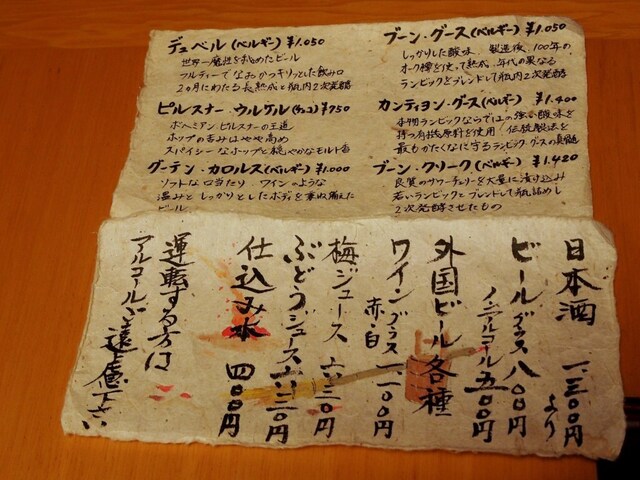 デュベル(ベルギー) ¥1.050
世界一魔性を秘めたビール
フルーティーでなおかつキリッとした飲み口
2ヵ月にわたる長熟成と瓶内2次発酵
ピルスナー ウルケル(チェコ) ¥750
ボヘミアン・ピルスナーの王道
ホップの苦みはやや高め
スパイシーなホップと穏やかなモルト香
グーデン・カロルス(ベルギー) ¥1.000
ソフトな口当たり ワインのような
温みとしっかりとしたボディを兼ね備えた
ビール
ブーン・グース(ベルギー) ¥1.050
しっかりした酸味、製造後、100年の
オーク樽を使って熟成、年代の異なる
ランビックをブレンドして瓶内2次発酵
カンティヨン・グース(ベルギー) ¥1.400
本物ランビックならではの強い酸味を
持つ有機原料を使用 伝統製法を
最もかたくなに守るランビック、グースの真髄
ブーン・クリーク(ベルギー) ¥1.420
良質のサワーチェリーを大量に漬け込み
若いランビックとブレンドして瓶詰めし
2次発酵させたもの
日本酒 一、三〇〇円より
ビール グラス 八〇〇円
ノンアルコール 五〇〇円
外国ビール各種
ワイン グラス 赤・白 一、一〇〇円
梅ジュース 六三〇円
ぶどうジュース 六三〇円
仕込み水 四〇〇円
運転する方は
アルコールご遠慮下さい